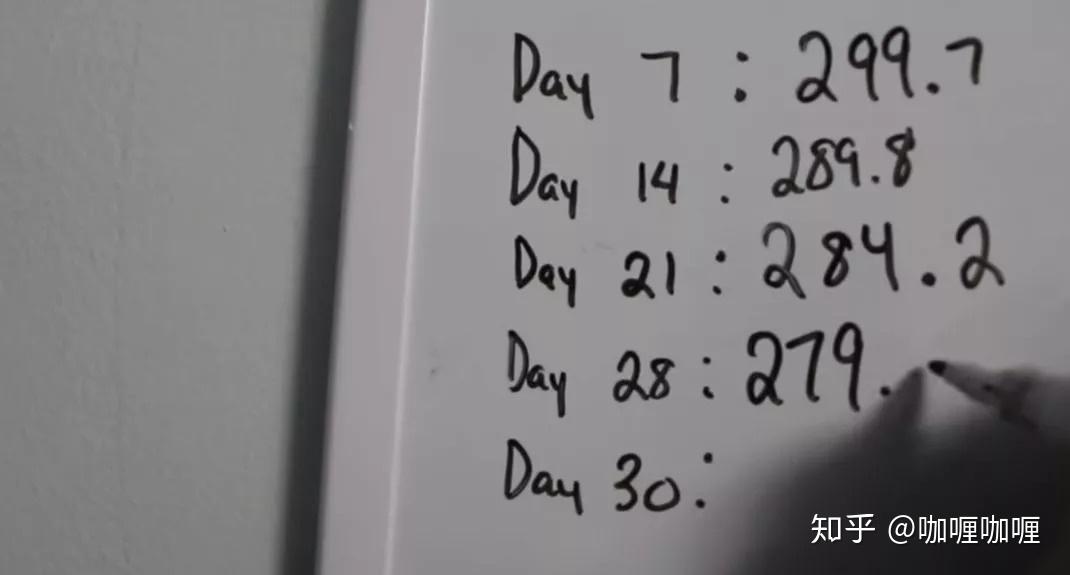 Day 7 : 299.7
Day 14 : 289.8
Day 21 : 284.2
Day 28 : 279.
Day 30:
知乎 @咖喱咖喱